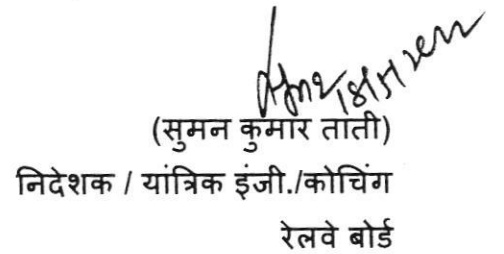 (सुमन कुमार ताती)
निदेशक / यांत्रिक इंजी./कोचिंग
रेलवे बोर्ड